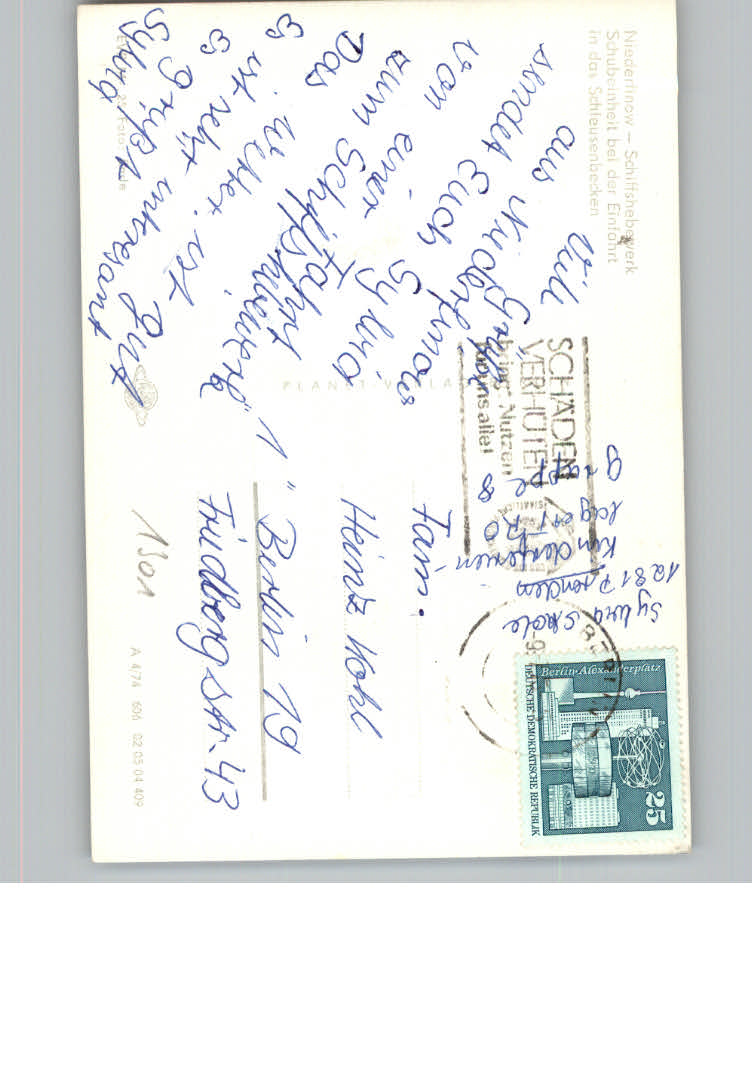 Niederfinow – Schiffshebewerk
Schubeinheit bei der Einfahrt
in das Schleusenbecken
Viele Grüße
aus Niederfinow
sendet Euch
Sylvia
von einer Fahrt
zum Schiffshebewerk
Das Wetter ist gut
Es ist sehr intresant
Es grüßt
Sylvia
PLANET-VERLAG
SCHÄDEN
VERHÜTEN
bringt Nutzen
für uns alle!
Sylvia
1281 Prenden
Kinderferien
lager
Gruppe 8
Fam.
Heinz Kohl
1 Berlin 19
Fridbergstr. 43
1901
A 4/74 606 02 05 04 409
Berlin-Alexanderplatz
25
DEUTSCHE DEMOKRATISCHE REPUBLIK